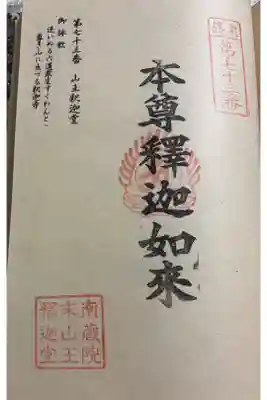 第七十三番
本尊釋迦如來
第七十三番　山王釈迦堂
御詠歌
迷いぬる六道衆生すくわんと
尊き山に出づる釈迦寺
南蔵院
末山王
釋迦堂